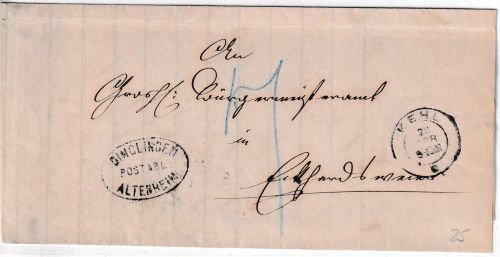 An
Grosh: Bürgermeisteramt
in
Eckhardsweier
DINGLINGEN
POSTABL.
ALTENHEIM
KEHL
25